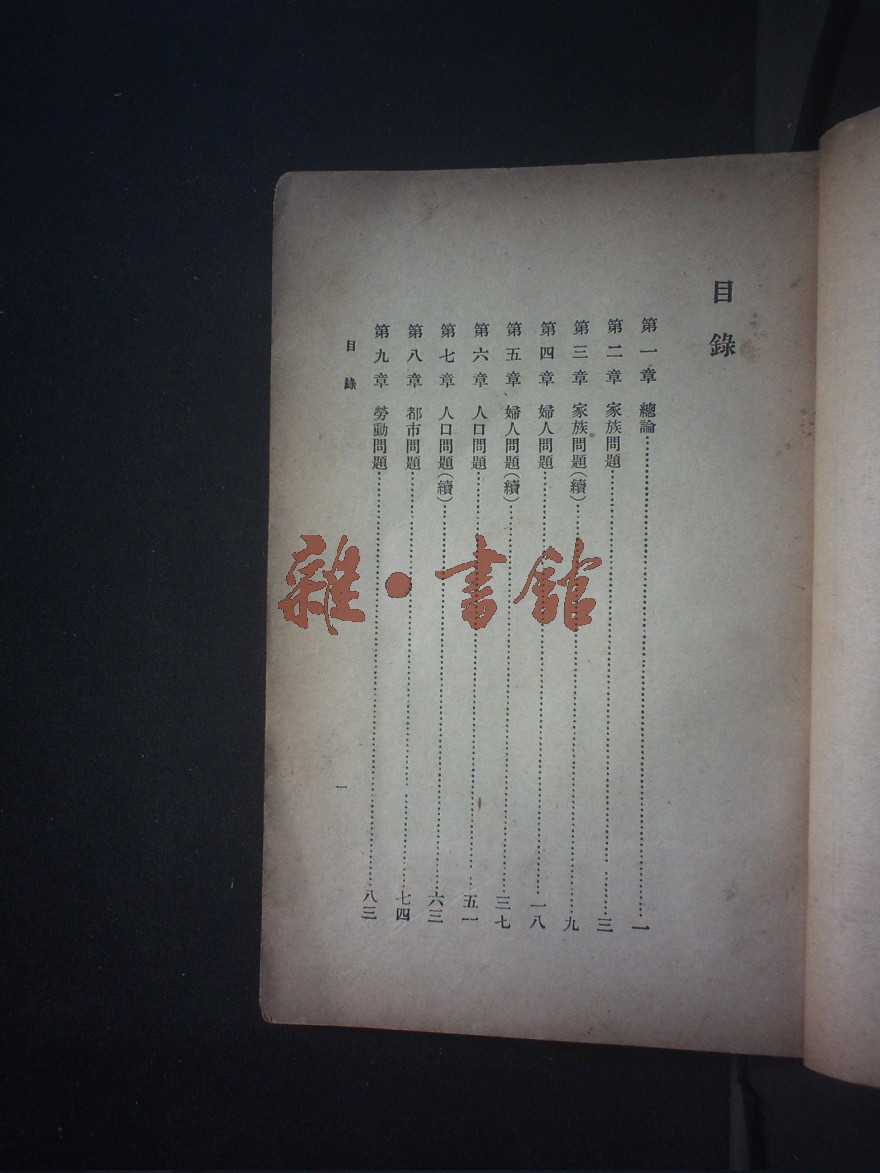 目錄
第一章 總論……一
第二章 家族問題……三
第三章 家族問題(續)……九
第四章 婦人問題……一八
第五章 婦人問題(續)……三七
第六章 人口問題……五一
第七章 人口問題(續)……六三
第八章 都市問題……七四
第九章 勞動問題……八三
目錄
一
雜·書館